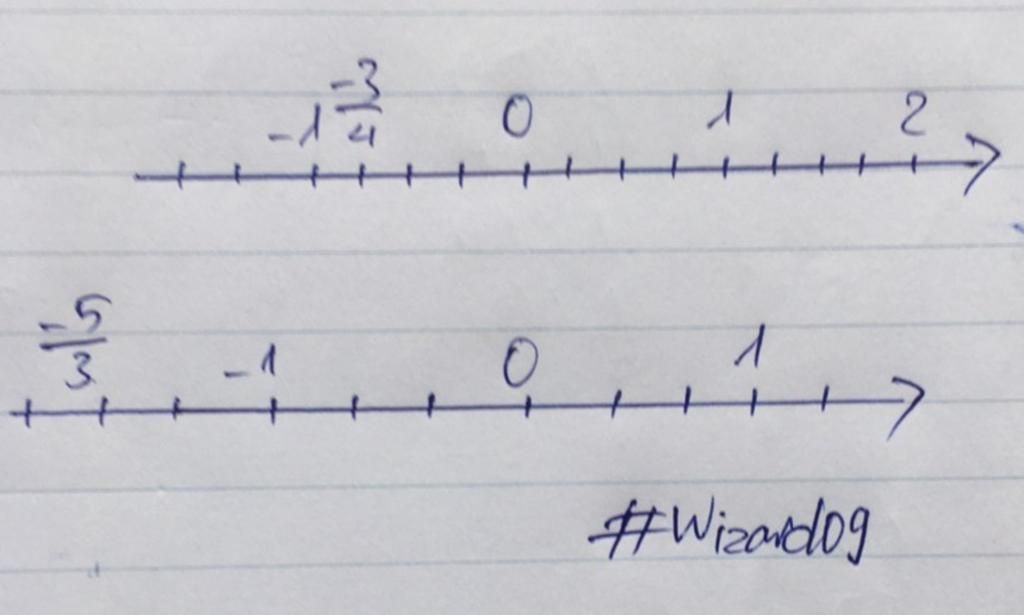 -1 -3/4 0 1 2
-5/3 -1 0 1
#Wizard09